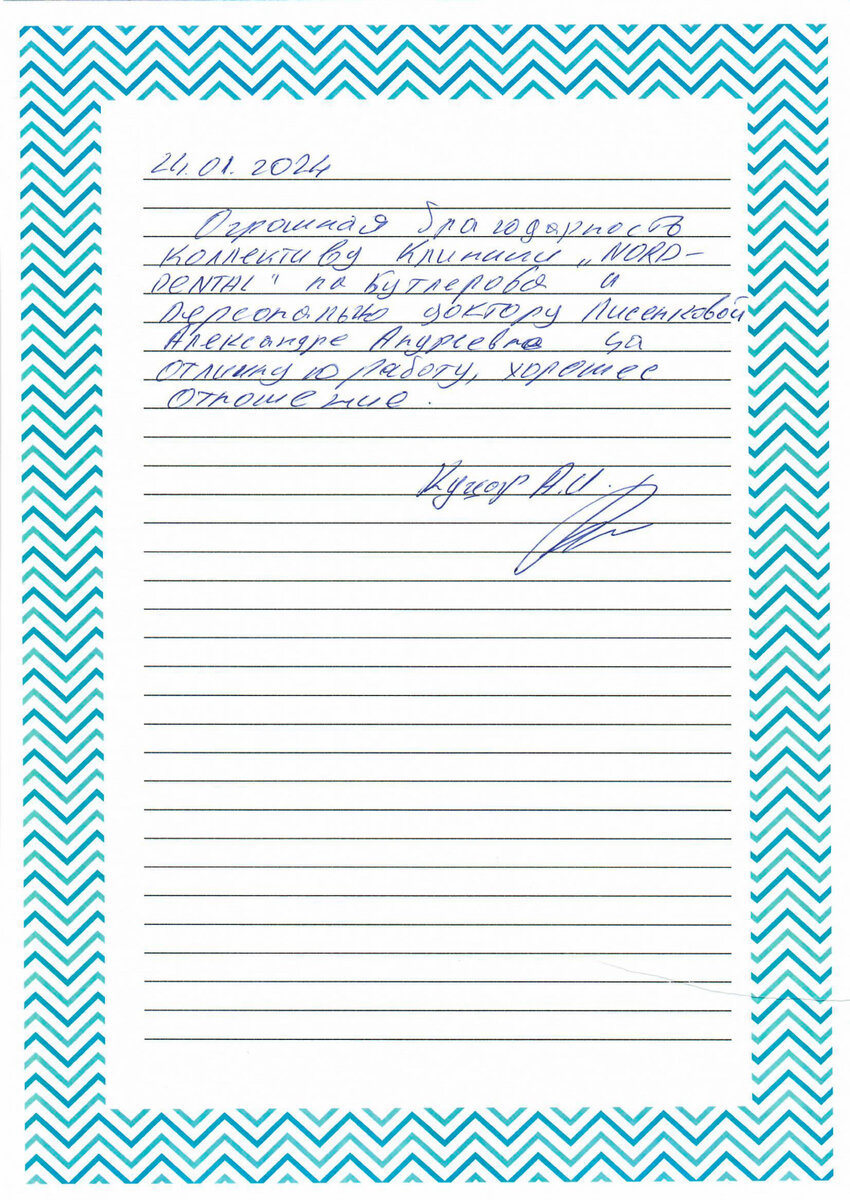 24.01.2024
Огромная благодарность
коллективу клиники „NORD-
DENTAL" на Бутлерова и
персонально доктору Лисенковой
Александре Андреевне за
отличную работу, хорошее
отношение.
Куцар А.И.